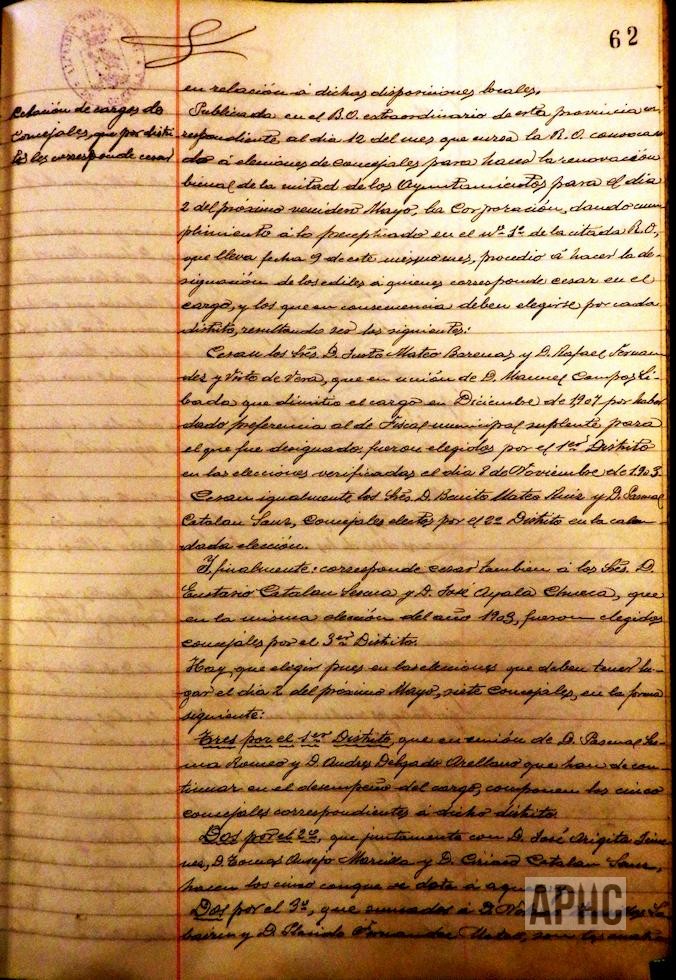 62
en relación á dichas disposiciones locales.
Relación de cargos de
concejales, que por distri-
tos les corresponde cesar
Publicada en el B.O. extraordinario de esta provincia co-
rrespondiente al dia 12 del mes que cursa la R.O. convocan-
do á elecciones de Concejales para hacer la renovación
bienal de la mitad de los Ayuntamientos para el dia
2 del próximo venidero Mayo, la Corporación, dando cum-
plimiento á lo preceptuado en el nº 1º de la citada R.O,
que lleva fecha 9 de este mismo mes, procedio á hacer la de-
signación de los ediles á quienes corresponde cesar en el
cargo, y los que en consecuencia deben elegirse por cada
distrito, resultando ser los siguientes:
Cesan los Srés. D. Justo Mateo Barenas y D. Rafael Fernan-
dez y Virto de Vera, que en unión de D. Manuel Campos Li-
bada que dimitio el cargo en Diciembre de 1907 por haber
dado preferencia al de Fiscal municipal suplente para
el que fue designado, fueron elegidos por el 1er Distrito
en las elecciones verificadas el dia 8 de Noviembre de 1903.
Cesan igualmente los Srés. D. Benito Mateo Ruiz y D. Pascual
Catalan Sanz, Concejales electos por el 2º Distrito en la calen-
dada elección.
Y finalmente: corresponde cesar tambien á los Srés. D.
Eustasio Catalan Sesma y D. José Ayala Chueca, que
en la misma elección del año 1903, fueron elegidos
concejales por el 3er Distrito.
Hay que elegir pues en las elecciones que deben tener lu-
gar el dia 2 del próximo Mayo, siete concejales, en la forma
siguiente:
Tres por el 1er Distrito, que en unión de D. Pascual Se-
ma Romeo y D. Andres Delgado Arellano que han de con-
tinuar en el desempeño del cargo, componen los cinco
concejales correspondientes á dicho distrito.
Dos por el 2º, que juntamente con D. José Arigita Jime-
nez, D. Tomas Ausejo Marcilla y D. Ciriaco Catalan Sanz,
hacen los cinco conque se dota á
Dos por el 3º, que sumados á D.
y D. Placido Fernandez Mateo, son los cuatro
APHC